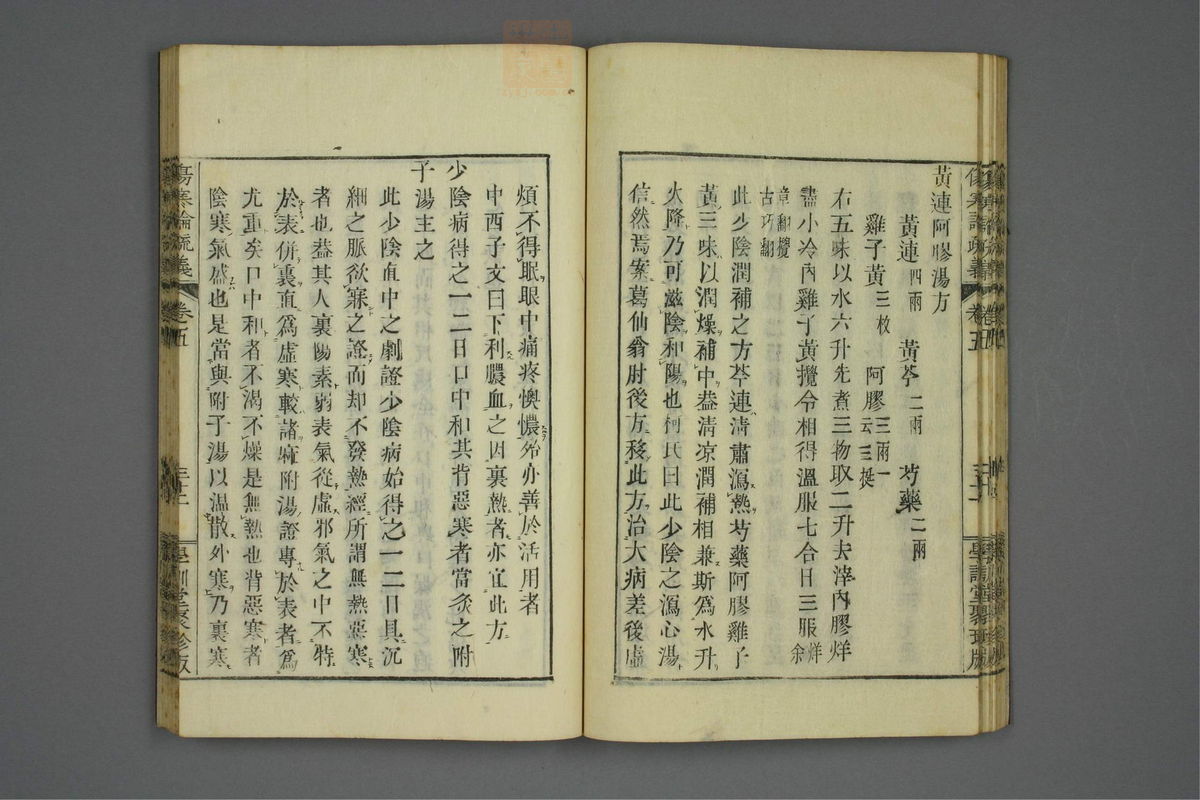 黃連阿膠湯方
黃連四兩 黃芩二兩 芍藥二兩
雞子黃三枚 阿膠三兩一云三挺
右五味以水六升先煮三物取二升去滓內膠烊
盡小冷內雞子黃攪令相得溫服七合日三服烊余
章翻攪古巧翻
此少陰潤補之方芩連清肅瀉熱芍藥阿膠雞子
黃三味以潤燥補中葢清凉潤補相兼斯爲水升
火降乃可滋陰和陽也柯氏曰此少陰之瀉心湯
信然焉案葛仙翁肘後方移此方治大病差後虛
煩不得眠眼中痛疼懊憹殆亦善於活用者
中西子文曰下利膿血之因裏熱者亦宜此方
少陰病得之一二日口中和其背惡寒者當灸之附
子湯主之
此少陰直中之劇證少陰病始得之一二日具沉
細之脈欲寐之證而却不發熱經所謂無熱惡寒
者也葢其人裏陽素弱表氣從虛邪氣之中不特
於表併裏直爲虛寒較諸麻附湯證專於表者爲
尤重矣口中和者不渴不燥是無熱也背惡寒者
陰寒氣盛也是當與附子湯以溫散外寒乃裏寒
傷寒論疏義 卷五 學訓堂聚珍版